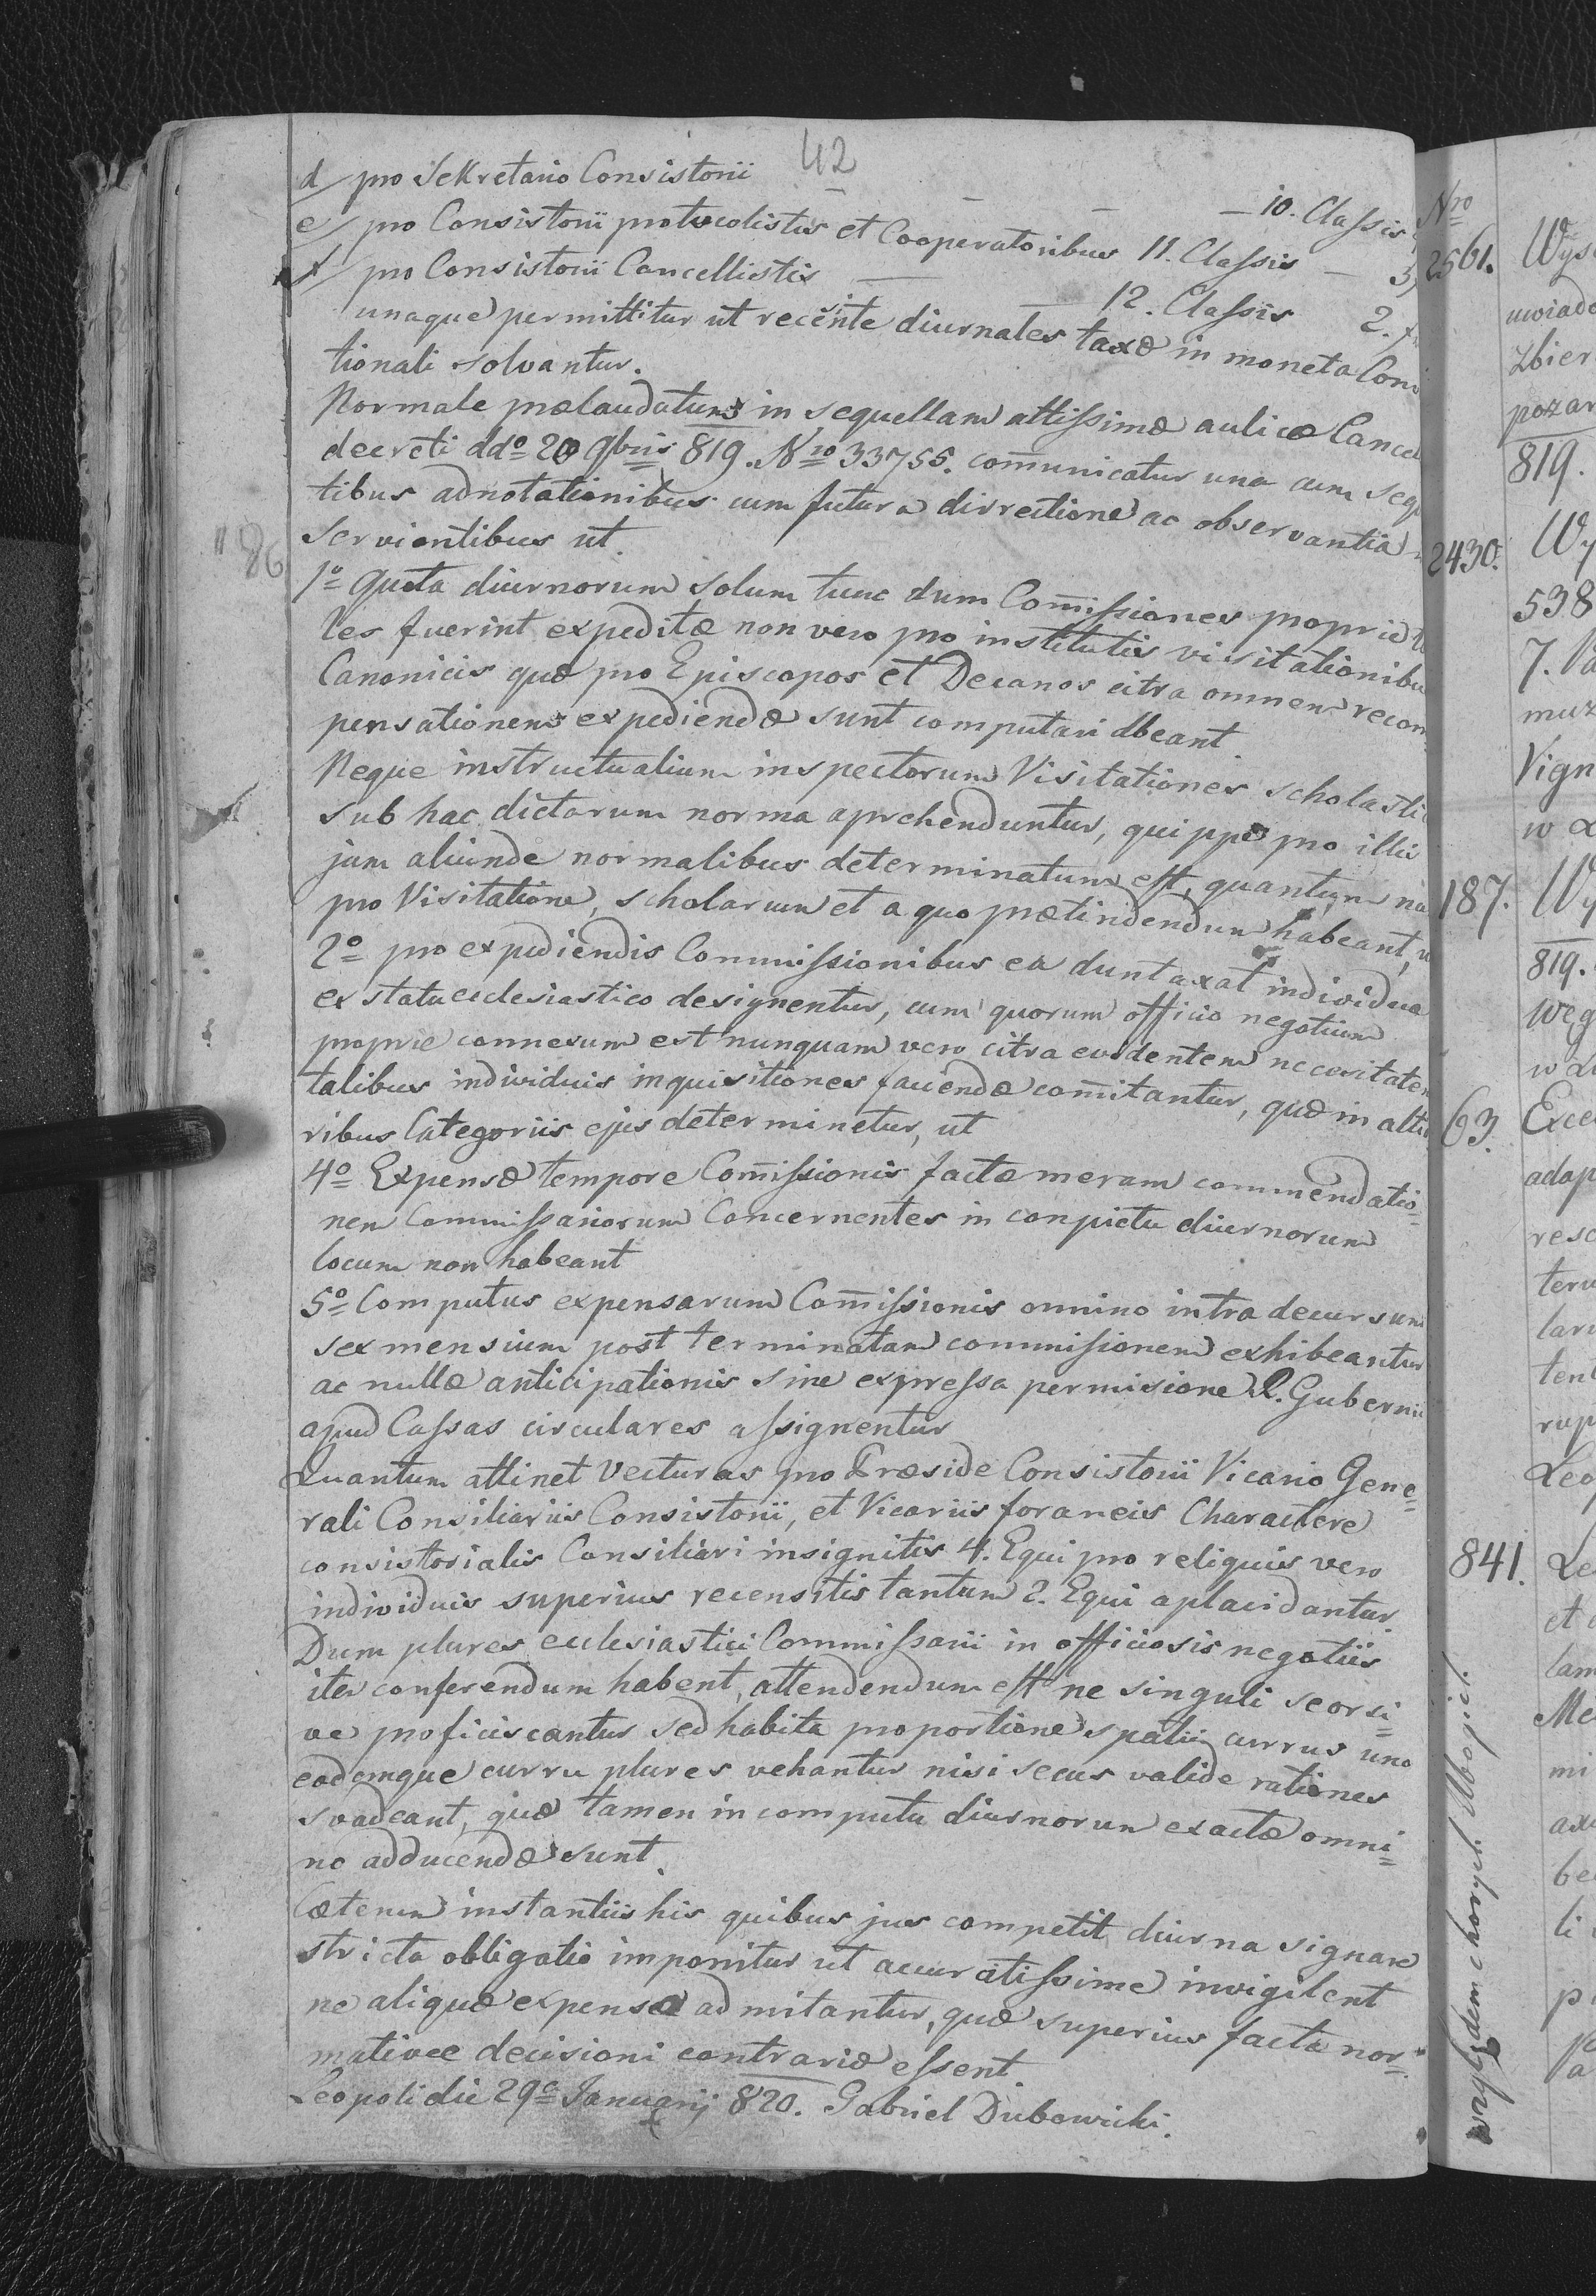 42
d/ pro Sekretario Consistorii — — — 10. Classis
e/ pro Consistorii protocolistis et Cooperatoribus 11. Classis — 3,
f/ pro Consistorii Cancellistis — — 12. Classis 2. f
unaque permittitur ut recensite diurnales taxæ in moneta Conv
tionali solvantur.
Normale prælaudatum in sequellam altissimæ aulicæ Cancel
decreti ddo 20 9bris 819. Nro 33755. communicatur una cum sequ
tibus adnotationibus cum futura dirrectione ac observantia
servientibus ut.
"86
1o Quota diurnorum solum tunc dum Comissiones proprie ta
les fuerint expeditæ non vero pro institutis visitationibu
Canonicis quæ pro Episcopos et Decanos citra omnem recom
pensationem expediendæ sunt computari dbeant
Neque instructualium inspectorum Visitationes scholasti
sub hac dictarum norma aprehenduntur, quippe pro illis
jam aliunde normalibus determinatum est, quantum na
pro Visitatione, scholarum et a quo prætindendum habeant,
2o pro expediendis Commissionibus ea duntaxat individua
ex statu ecclesiastico designentur, cum quorum officio negotium
proprie connexum est nunquam vero citra evidentem necessitatem
talibus individuis inquisitiones faciendæ comitantur, quæ in alti
ribus Categoriis ejus determinetur, ut
4o Expensæ tempore Comissionis factæ meram commendatio=
nem Commissariorum Concernentes in conpictu diurnorum
locum non habeant
5o Computus expensarum Comissionis omnino intra decursum
sex mensium post terminatam commissionem exhibeantur
ac nullæ anticipationis sine expressa permisione R. Gubernii
apud Cassas circulares assignentur
Quantum attinet Vecturas pro Præside Consistorii Vicario Gene=
rali Consiliariis Consistorii, et Vicariis foraneis Charactere
consistorialis Consiliari insignitis 4. Equi pro reliquis vero
individuis superius recensitis tantum 2. Equi aplacidantur.
Dum plures ecclesiastici Commissarii in officiosis negotiis
iter conferendum habent, attendendum est ne singuli seorsi=
ve proficiscantur sed habita proportione spatii currus uno
eodemque curru plures vehantur nisi secus valide rationes
svadeant, quæ tamen in computu diurnorum exacte omni=
no adducendæ sunt.
Cæterum instantiis his quibus jus competit diurna signare
stricta obligatio imponitur ut accuratissime invigilent
ne aliquæ expensæ admitantur, quæ superius facta nor=
mativæ decisioni contrariæ essent.
Leopoli die 29a Januarij 820. Gabriel Dubowicki.
Nro
2561. Wyso
uwiado
zbier
pozar
819.
2430. Wy
538
7. Pa
muz
Vign
w
187. Wy
819.
weg
w
63. Exce
adap
resc
teru
lari
tent
rup
Leop
841. Le
et
lam
Me
mi
axi
be
li
p
względem chorych